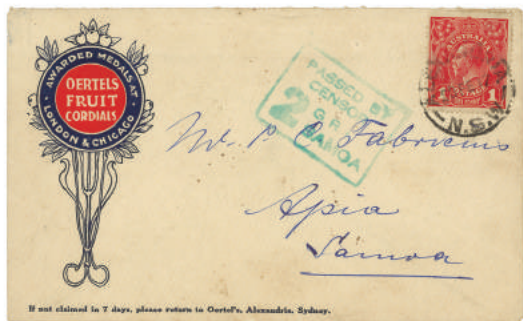 AWARDED MEDALS AT
OERTELS
FRUIT
CORDIALS
LONDON & CHICAGO
PASSED BY
CENSOR
2 G.R.
SAMOA
AUSTRALIA
1 POSTAGE 1
N.S.W
Mr. P C Fabricius
Apia
Samoa
If not claimed in 7 days, please return to Oertel's, Alexandria, Sydney.